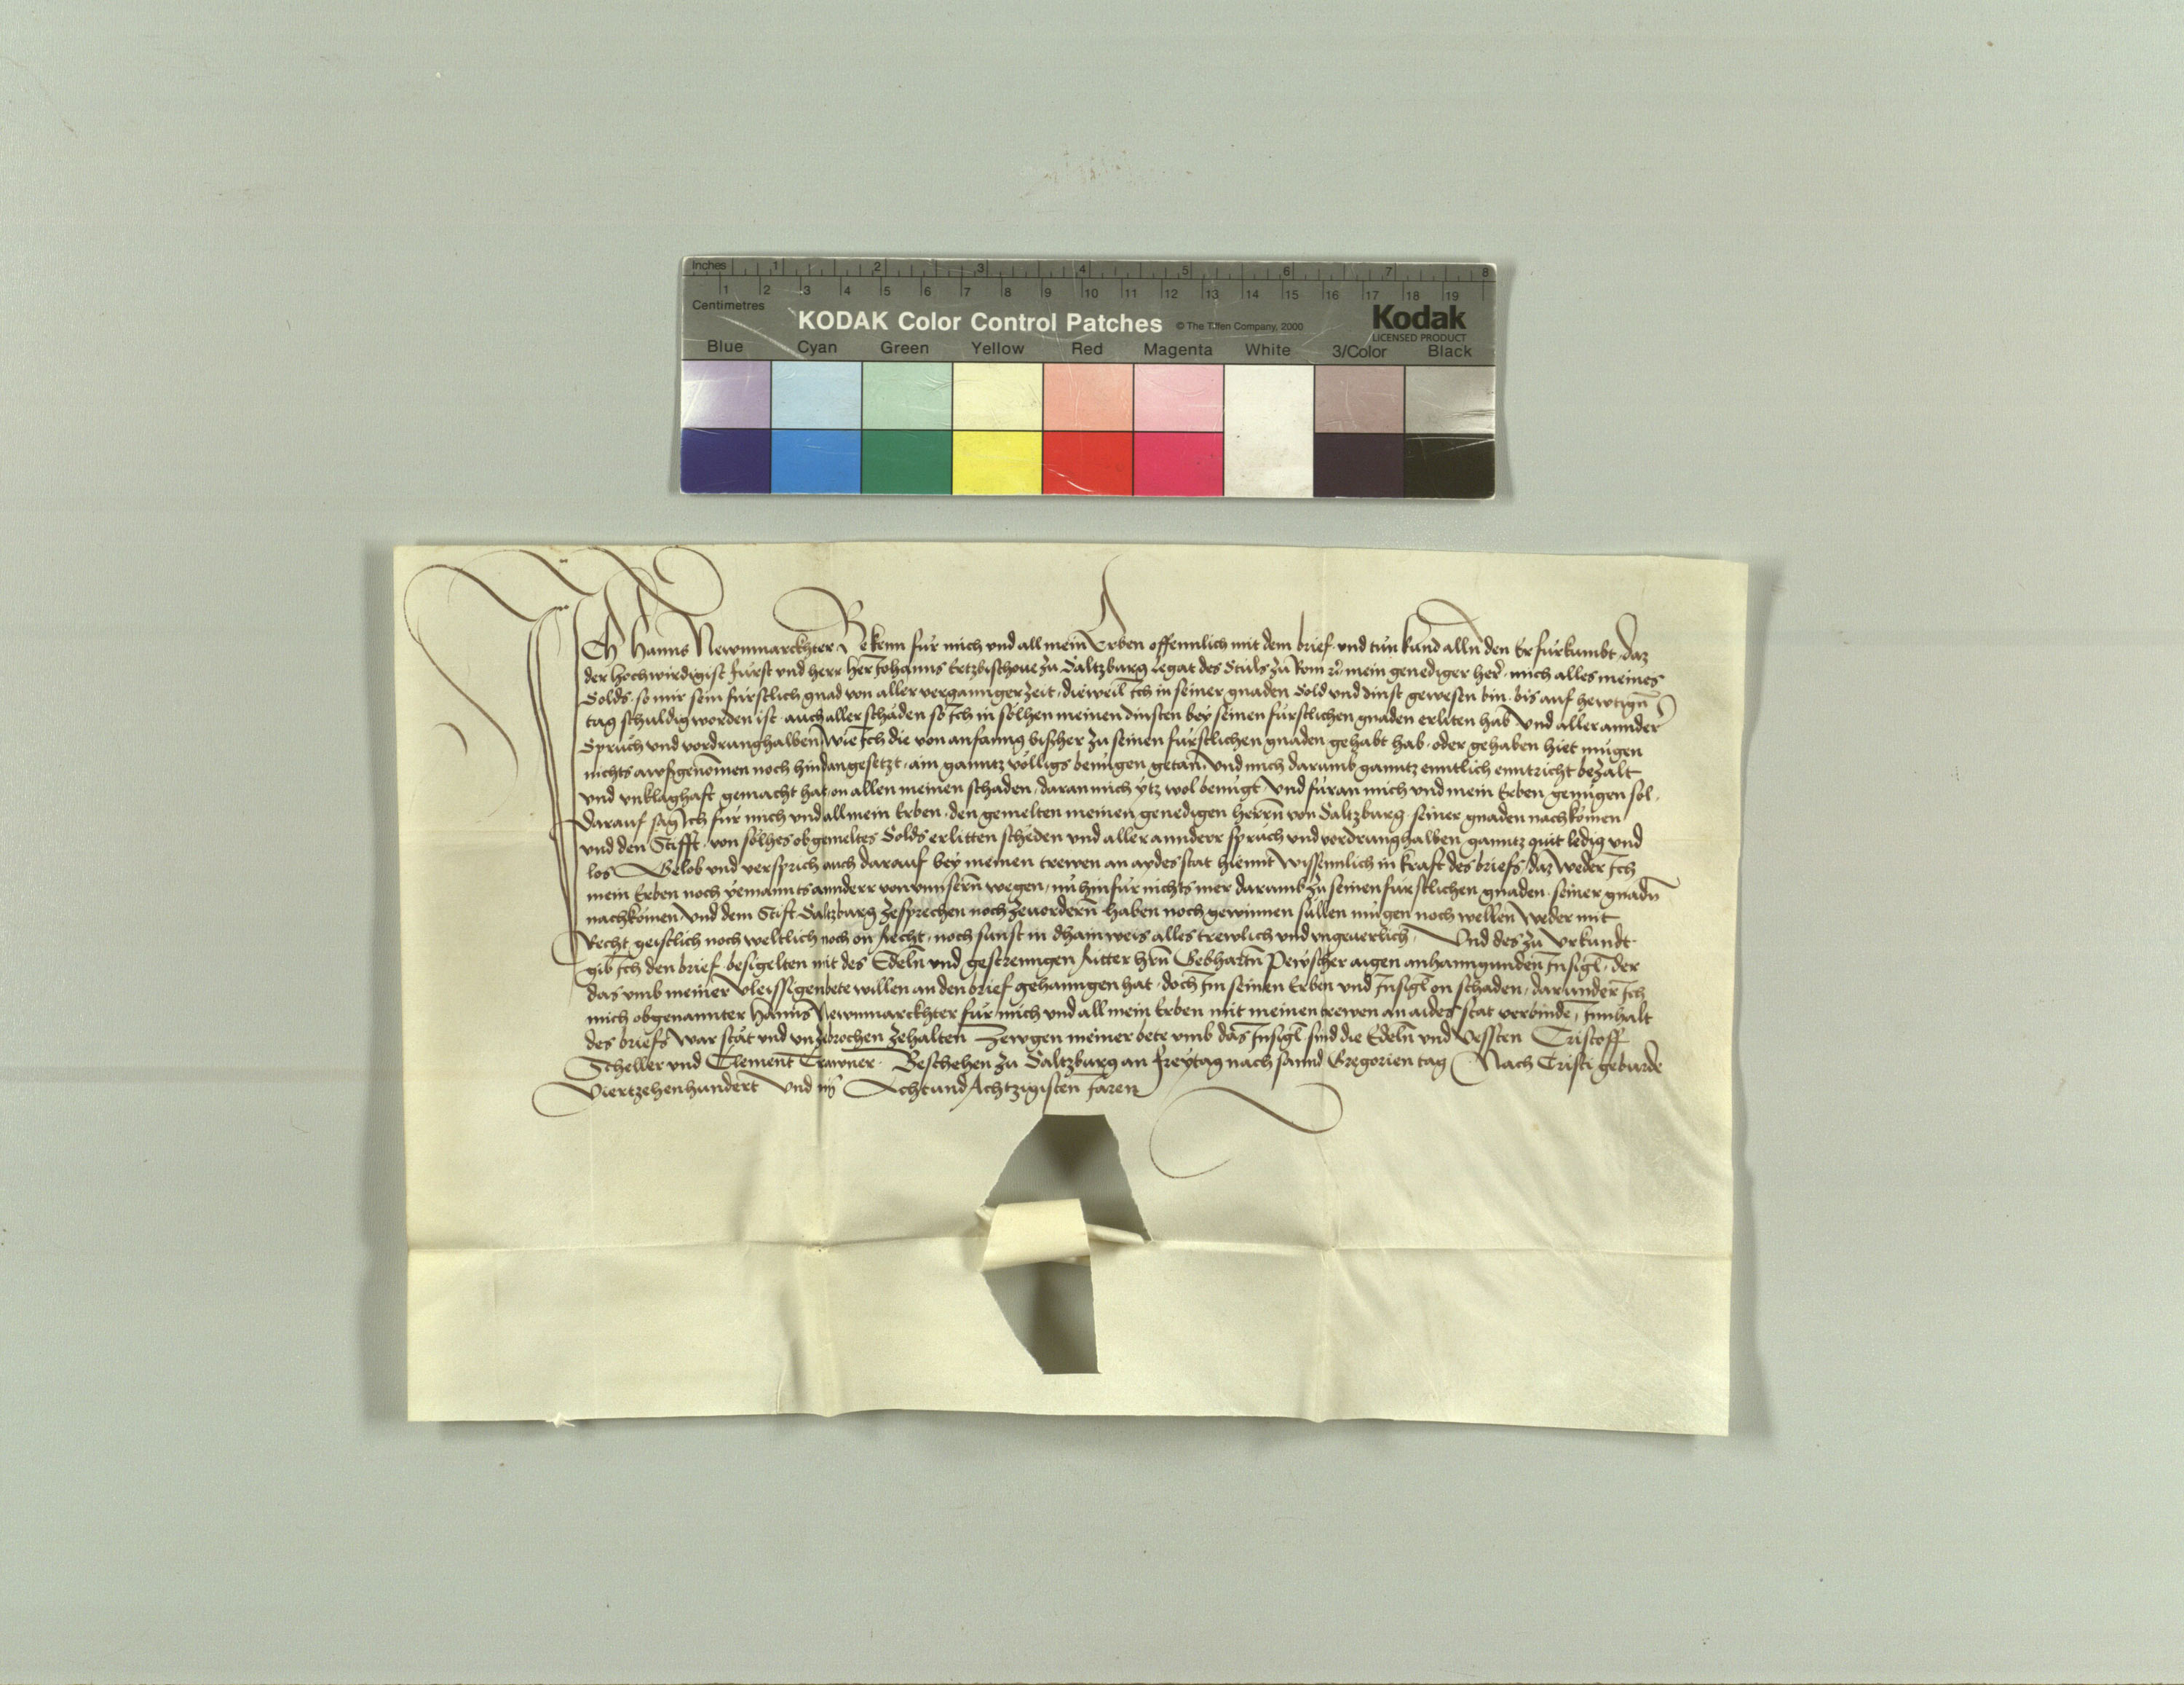 Inches 1 2 3 4 5 6 7 8
1 2 3 4 5 6 7 8 9 10 11 12 13 14 15 16 17 18 19
Centimetres
KODAK Color Control Patches © The Tiffen Company, 2000 Kodak
LICENSED PRODUCT
Blue Cyan Green Yellow Red Magenta White 3/Color Black
ICh Hanns Newnmarckhter Bekenn für mich und all mein Erben offennlich mit dem brief und tün kund alln den Er fürkumbt daz
der hochwirdigist fürst und herr her Johanns Ertzbischoue zu Saltzburg Legat des Stüls zu Rom mein genediger her mich alles meines
Solds so mir sein fürstlich gnad von aller verganngerzeit dieweil Ich in seiner gnaden Sold und dinst gewesen bin bis auf hewtign
tag schuldig worden ist auch aller schäden so Ich in sölhen meinen dinsten bey seinen fürstlichen gnaden erliten hab und aller annder
Spruch und vordrunghalben wie Ich die von anfanng bischer zu seinen fürstlichen gnaden gehabt hab oder gehaben hiet mügen
nichts awsgenomen noch hindangesetzt ain ganntz völligs benügen getan und mich darumb ganntz enntlich enntricht bezalt
und unklaghaft gemacht hat on allen meinen schaden daran mich ytz wol benügt und füran mich und mein Erben genügen sol
Darauf sag Ich für mich und all mein Erben den gemelten meinen genedigen herrn von Saltzburg seiner gnaden nachkomen
und den Stifft von sölhes obgemeltes Solds erlitten scheden und aller annderr spruch und vordrunghalben ganntz quit ledig und
los Gelob und versprich auch darauf bey meinen trewen an aydes stat hiemit wissennlich in kraft des briefs daz weder Ich
mein Erben noch yemannts annderr von unnsern wegen nu hinfür nichts mer darumb zu seinen fürstlichen gnaden seiner gnadn
nachkomen und dem Stift Saltzburg zesprechen noch zeuordern haben noch gewinnen süllen mügen noch wellen weder mit
Recht geistlich noch weltlich noch on Recht noch sunst in dhain weis alles trewlich und ungeuerlich Und des zu Urkundt
gib Ich den brief besigelten mit des Edeln und gestrenngen Ritter hrn Gebhartn Pewscher aigen anhanngunden Insigl der
das umb meiner vleissigen bete willen an den brief gehanngen hat doch Im seinen Erben und Insigl on schaden darunder Ich
mich obgenannter Hanns Newnmarckhter für mich und all mein Erben mit meinen trewen an aides stat verbinde Innhalt
des briefs war stät und unzebrochen zehalten Zewgen meiner bete umb das Insigl sind die Edeln und vessten Cristoff
Scheller und Clement Trawner Beschehen zu Saltzburg an Freytag nach sannd Gregorien tag Nach Cristi geburde
Viertzehenhundert und im Acht und Achtzigisten Jaren